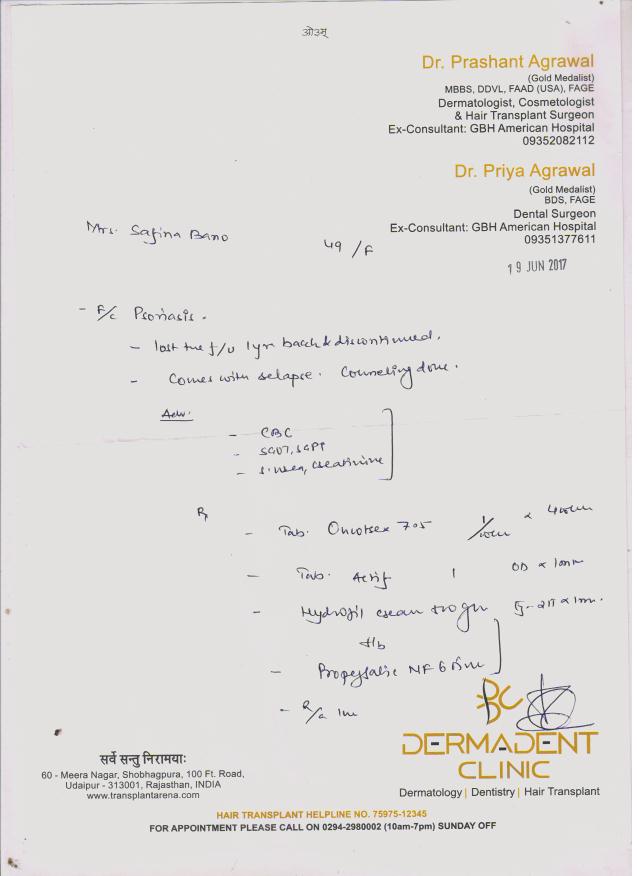 ओ३म्
Dr. Prashant Agrawal
(Gold Medalist)
MBBS, DDVL, FAAD (USA), FAGE
Dermatologist, Cosmetologist
& Hair Transplant Surgeon
Ex-Consultant: GBH American Hospital
09352082112
Dr. Priya Agrawal
(Gold Medalist)
BDS, FAGE
Dental Surgeon
Ex-Consultant: GBH American Hospital
09351377611
Mrs. Safina Bano 49/F
19 JUN 2017
- F/c Psoriasis.
- lost the f/u 1yr back & discontinued.
- Comes with relapse. Counseling done.
Adv.
- CBC
- SGOT, SGPT
- S. urea, creatinine
Rx
- Tab. 7.5
- Tab. 1 OD x
- cream
- NF
-
DERMADENT
CLINIC
Dermatology | Dentistry | Hair Transplant
सर्वे सन्तु निरामयाः
60 - Meera Nagar, Shobhagpura, 100 Ft. Road,
Udaipur - 313001, Rajasthan, INDIA
www.transplantarena.com
HAIR TRANSPLANT HELPLINE NO. 75975-12345
FOR APPOINTMENT PLEASE CALL ON 0294-2980002 (10am-7pm) SUNDAY OFF